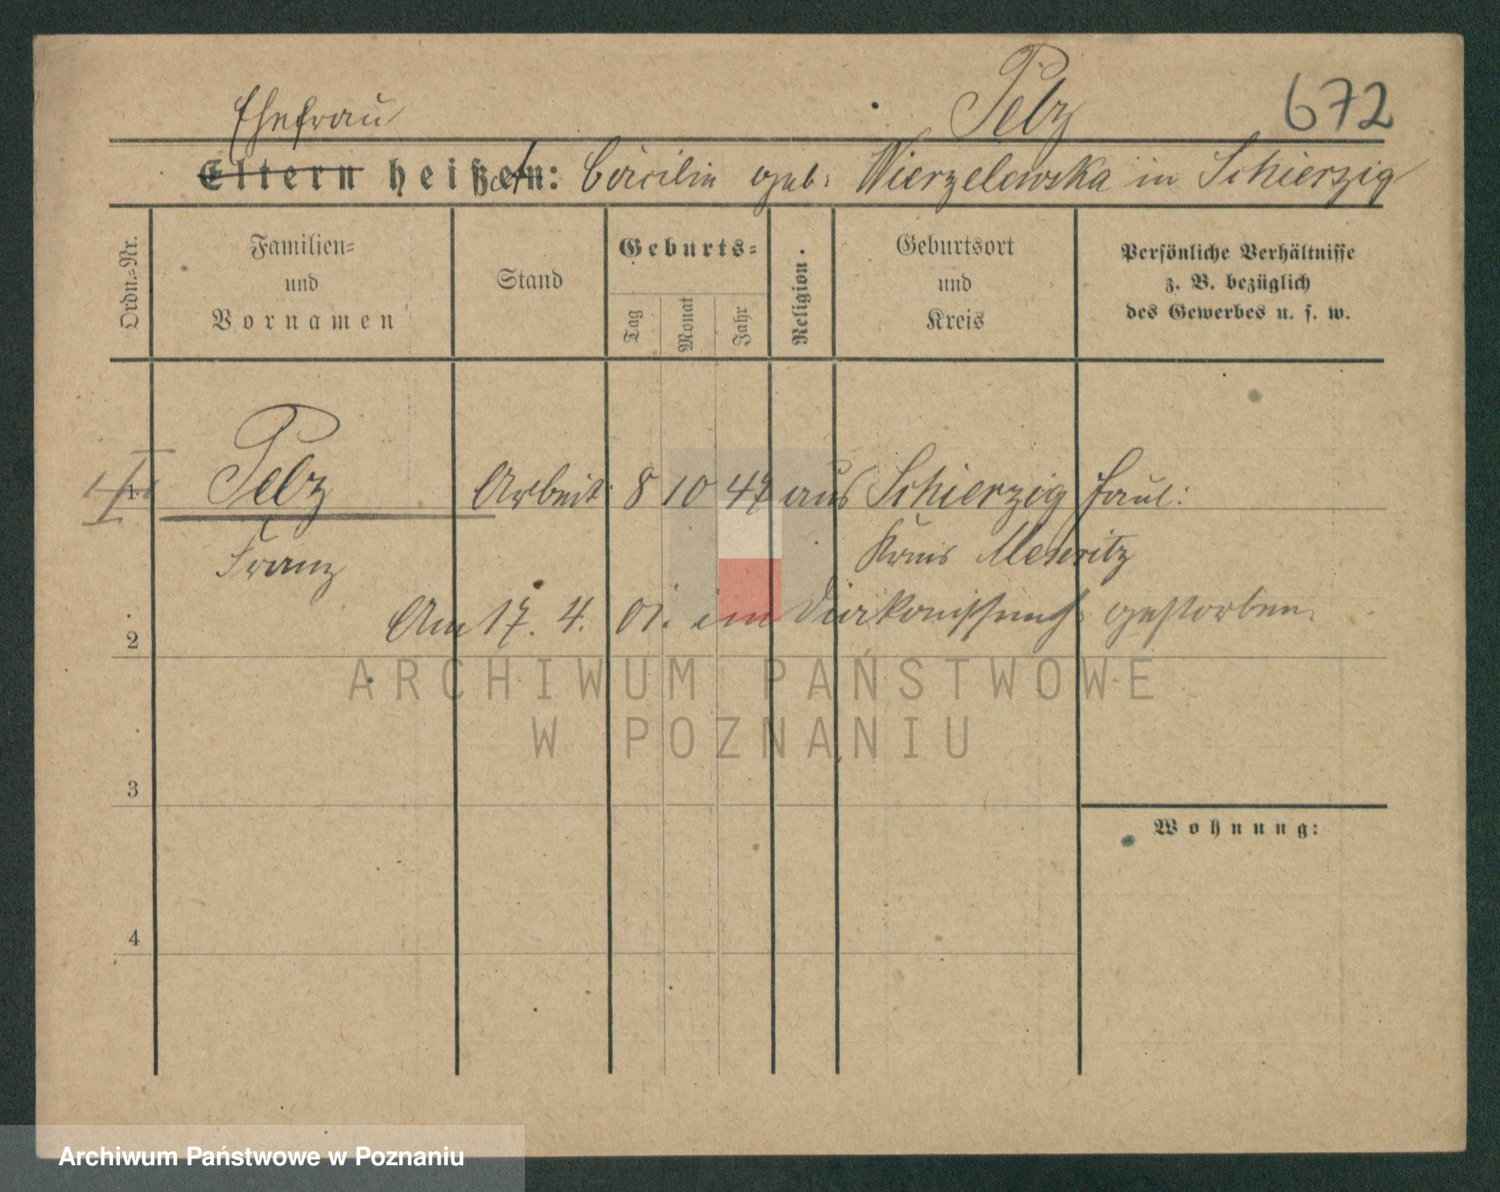 Pelz 672
Ehefrau
Eltern heißen: Cäcilie geb. Wierzelewska in Schierzig
Ordn.-Nr.
Familien-
und
Vornamen
Stand
Geburts-
Tag
Monat
Jahr
Religion.
Geburtsort
und
Kreis
Persönliche Verhältnisse
z. B. bezüglich
des Gewerbes u. s. w.
Pelz Arbeit. 8 10 47 aus Schierzig
Franz Kreis Meseritz
Am 17. 4. 01. im Diakonissenh. gestorben.
2
ARCHIWUM PAŃSTWOWE
W POZNANIU
3
Wohnung:
4
Archiwum Państwowe w Poznaniu